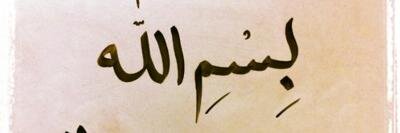 بِسْمِ اللّه